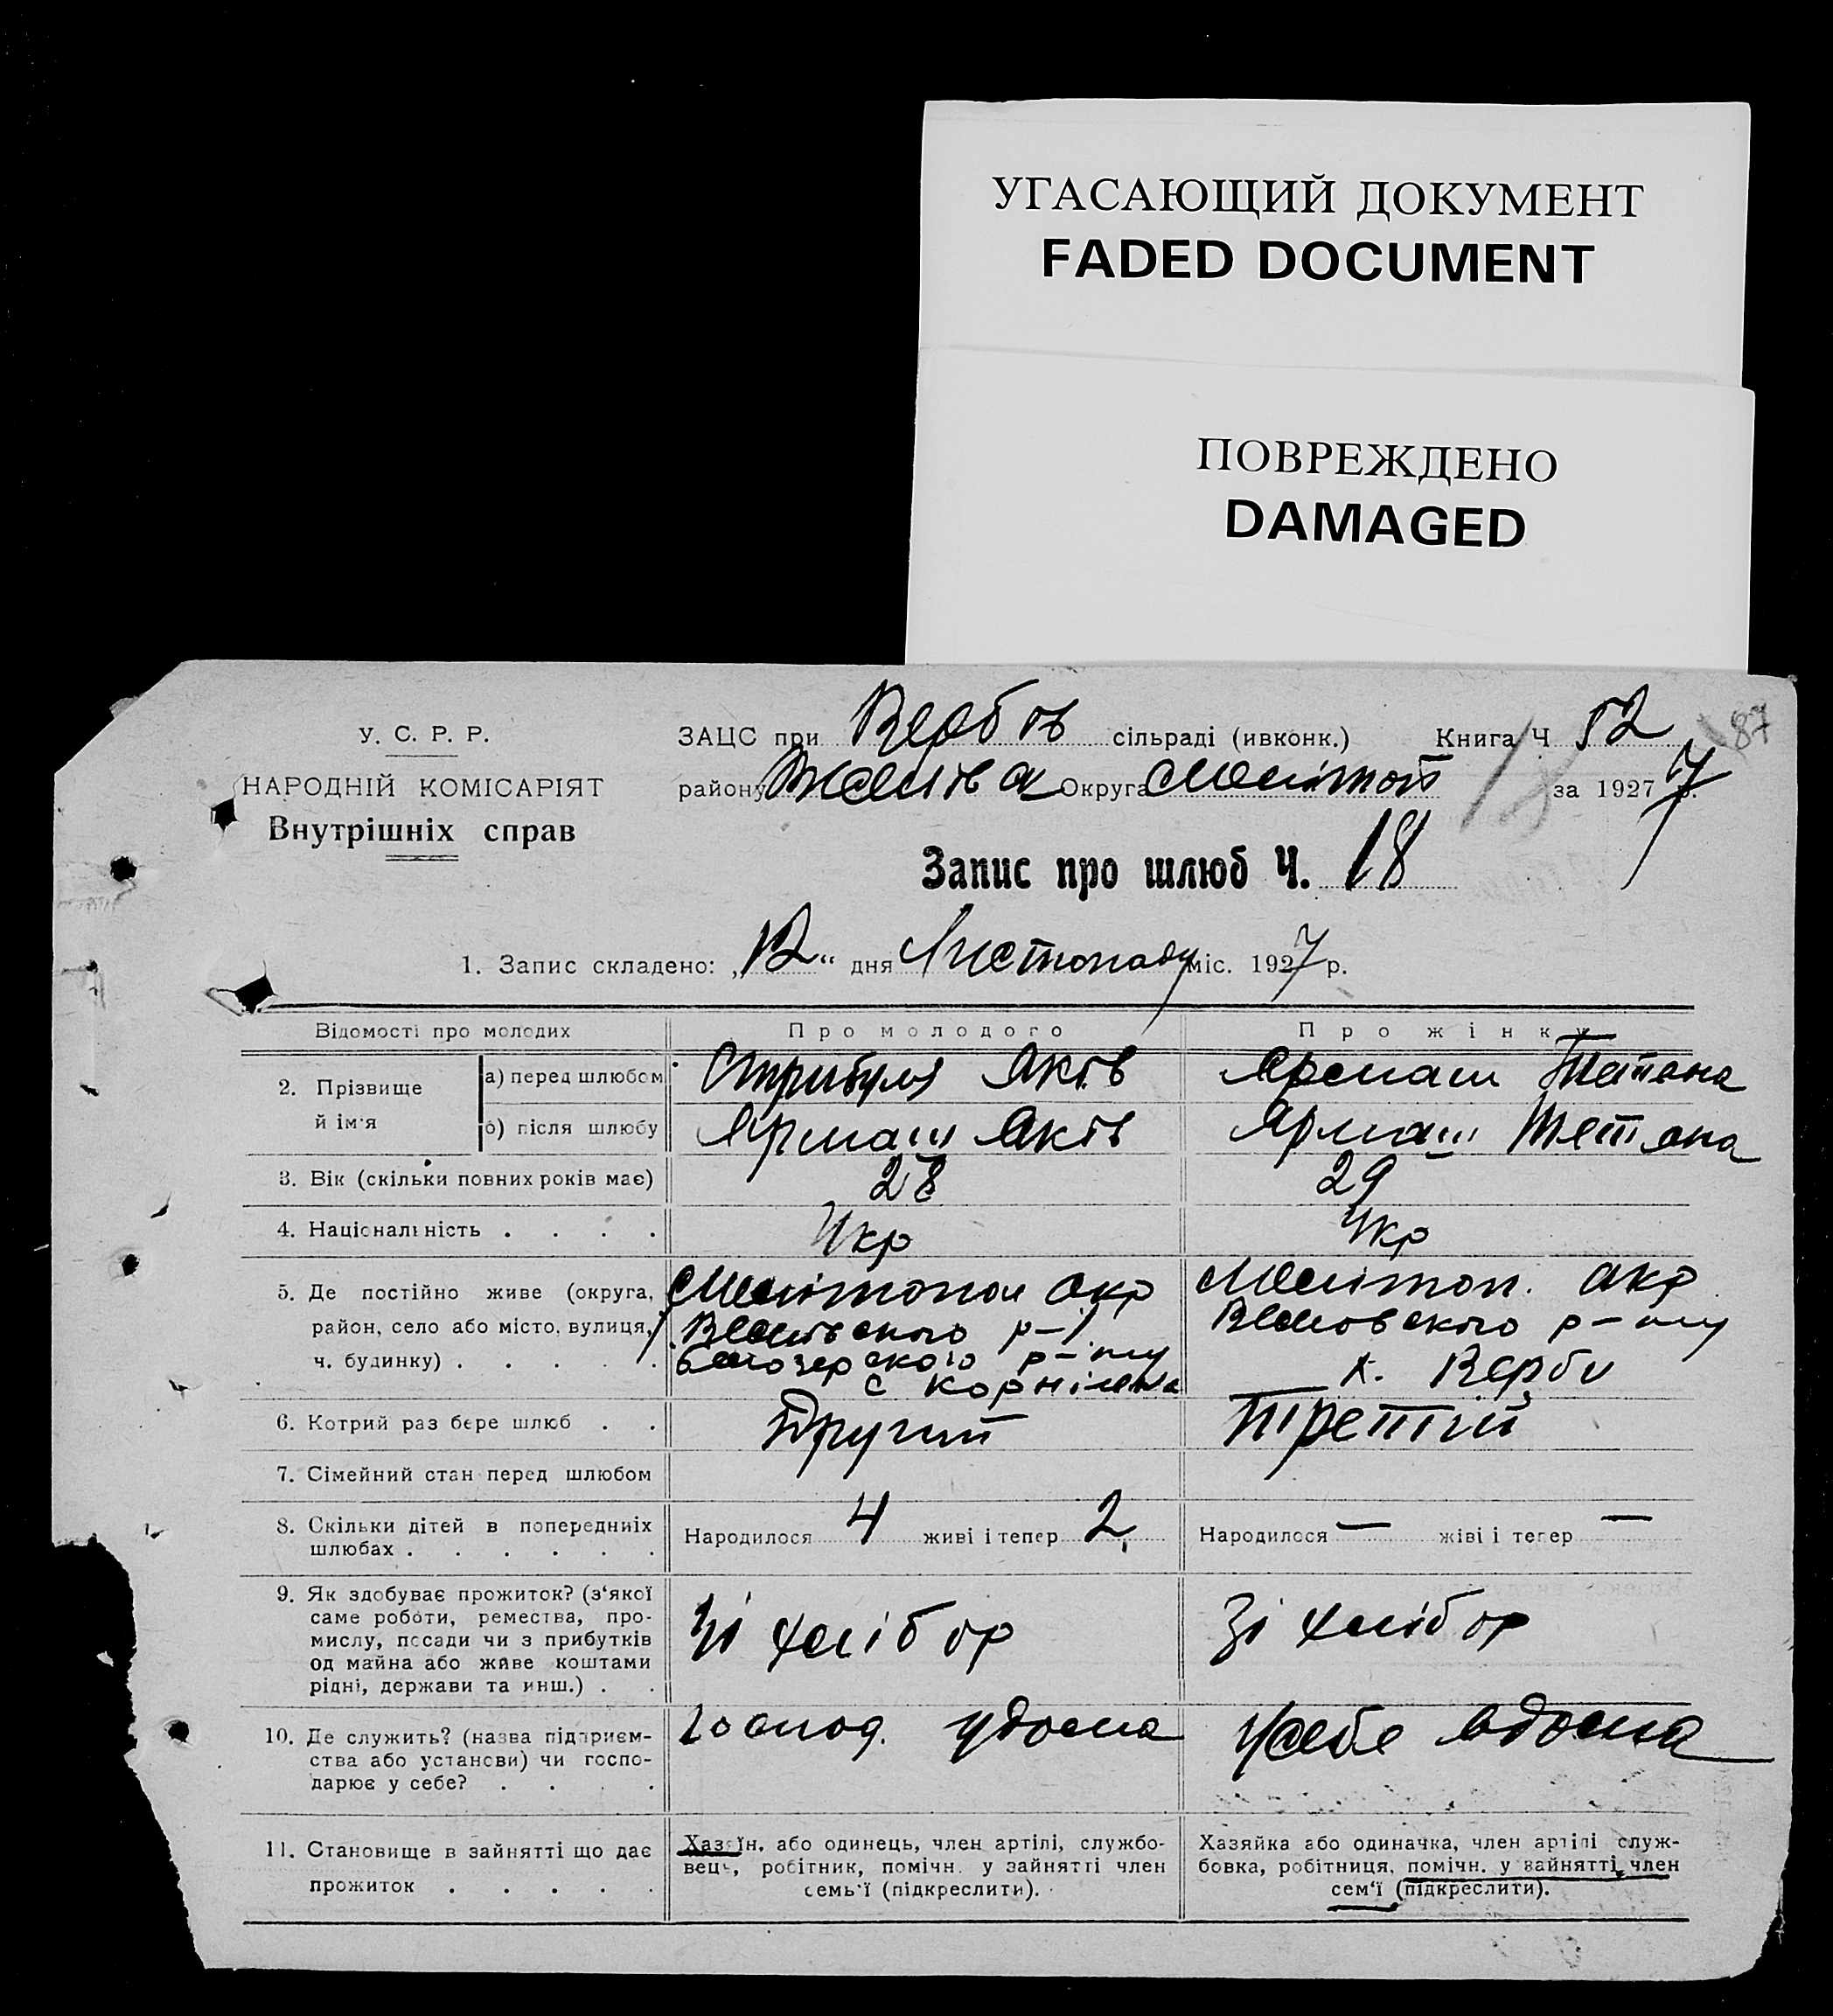 УГАСАЮЩИЙ ДОКУМЕНТ
FADED DOCUMENT
ПОВРЕЖДЕНО
DAMAGED
У. С. Р. Р.
НАРОДНІЙ КОМІСАРІЯТ
Внутрішніх справ
ЗАЦС при Вербів сільраді (ивконк.) Книга Ч 52 87
району Округа Меліто за 1927 7 р.
Запис про шлюб Ч. 18
1. Запис складено: „12“ дня Листопаду міс. 1927 р.
Відомості про молодих Про молодого Про жінку
2. Прізвище й ім'я
а) перед шлюбом Стрибуля Яків Ярмаш Татяна
б) після шлюбу Ярмаш Яків Ярмаш Тетяна
3. Вік (скільки повних років має) 28 29
4. Національність . . . . Укр Укр
5. Де постійно живе (округа, район, село або місто, вулиця, ч. будинку) . . . . .
Мелітопол окр
р-
білозерського р-ну
с корніівка
Мелітоп. окр
р-ну
х. Верби
6. Котрий раз бере шлюб . . Другий Третій
7. Сімейний стан перед шлюбом
8. Скільки дітей в попередниіх шлюбах . . . . . . Народилося 4 живі і тепер 2 Народилося — живі і тепер —
9. Як здобуває прожиток? (з'якої
саме роботи, ремества, про-
мислу, посади чи з прибутків
од майна або живе коштами
рідні, держави та инш.) . .
Зі хлібор Зі хлібор
10. Де служить? (назва підприєм-
ства або установи) чи госпо-
дарює у себе? . . . .
Господ. удома у себе вдома
11. Становище в зайнятті що дає
прожиток . . . . .
Хазяїн, або одинець, член артілі, службо-
вець, робітник, помічн. у зайнятті член
семь'ї (підкреслити).
Хазяйка або одиначка, член артілі служ-
бовка, робітниця, помічн. у зайнятті член
сем'ї (підкреслити).